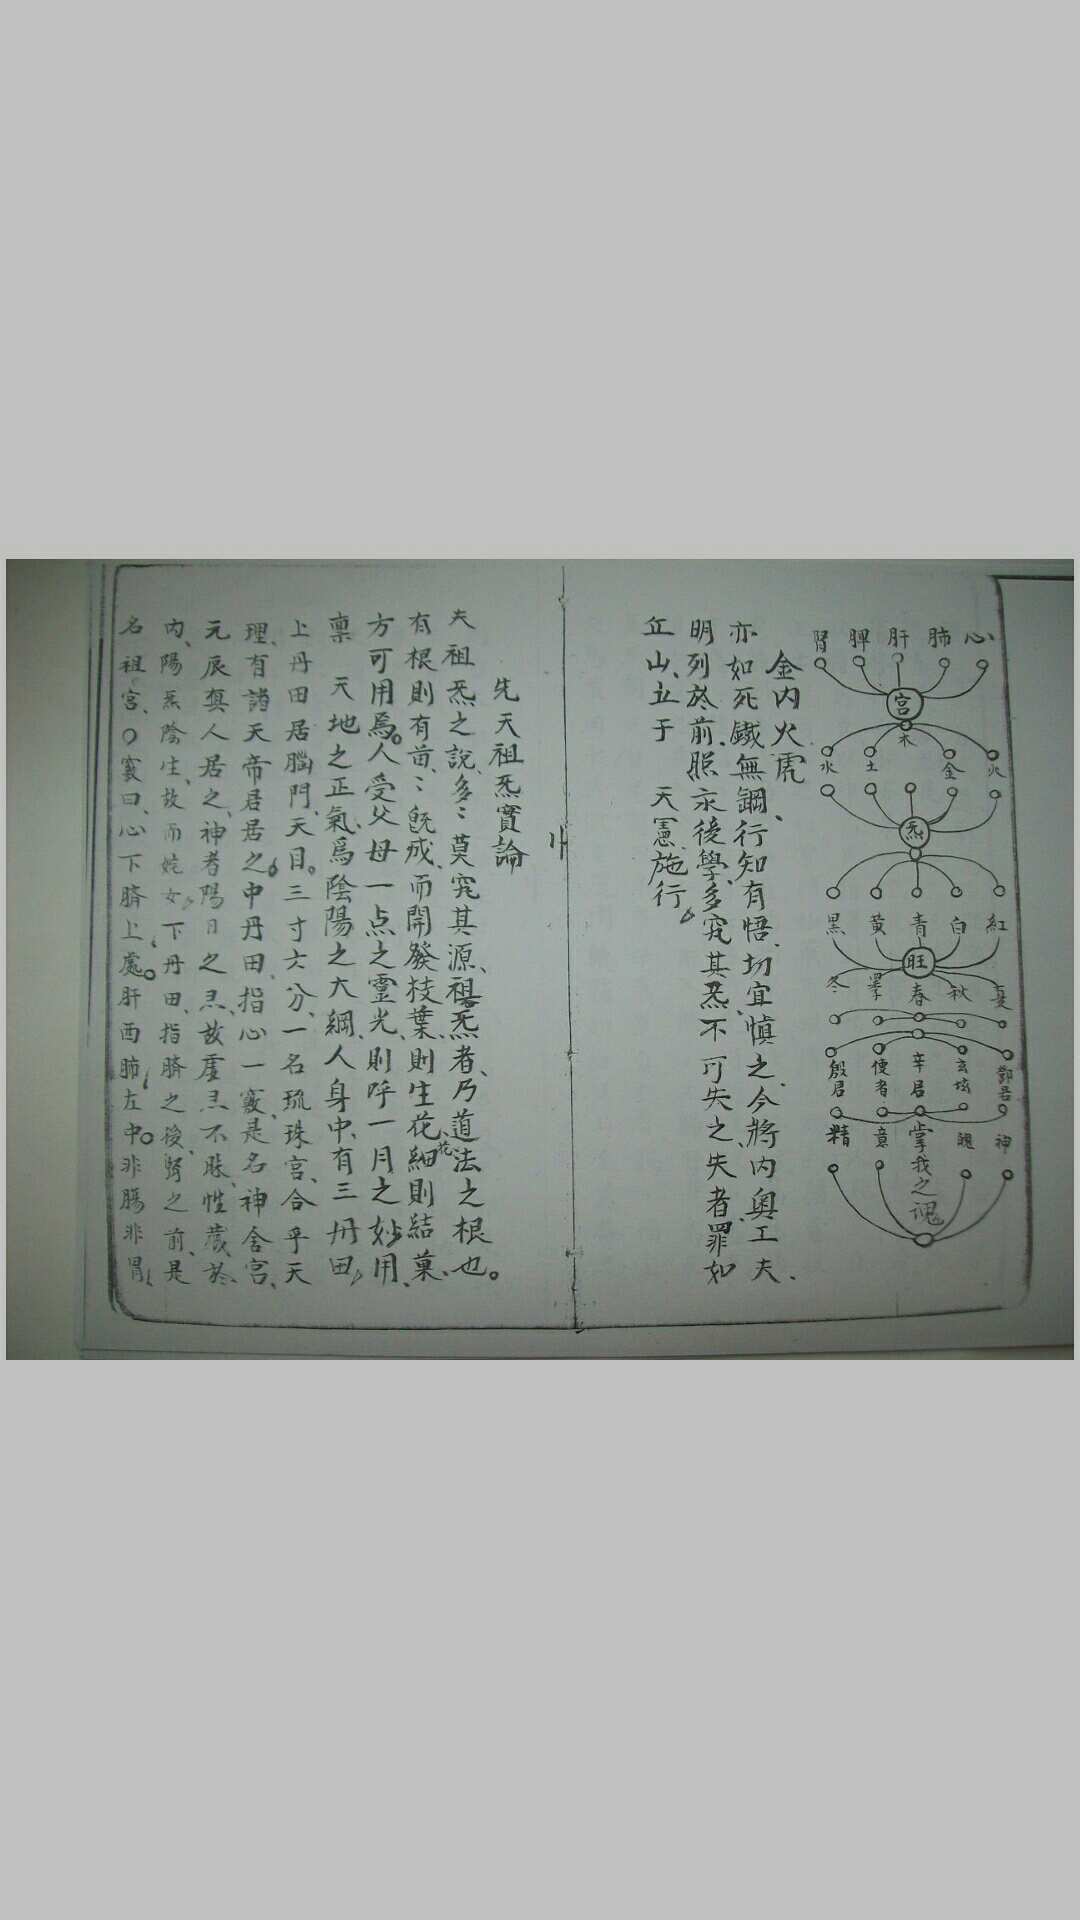 心 肺 肝 脾 腎
宮
火 金 木 土 水
炁
紅 白 青 黃 黑
旺
夏 秋 春 季 冬
鄧君 玄坛 辛君 使者 殷君
神 魄 掌我之魂 意 精
金內火虎
亦如死鐵無鋼、行知有悟、切宜慎之、今將內奧工夫、
明列於前、照示後學、多究其炁、不可失之、失者罪如
丘山、立于 天憲施行
先天祖炁實論
夫祖炁之說、多〻莫究其源、祖炁者、乃道法之根也。
有根則有苗、〻既成、而開發枝葉、則生花、花細則結菓、
方可用焉。人受父母一点之靈光、則呼一月之妙用、
稟 天地之正氣、爲陰陽之大綱、人身中、有三丹田
上丹田居腦門、天目。三寸六分、一名琉珠宮、合乎天
理、有諸天帝居居之。中丹田、指心一竅、是名神舍宮、
元辰真人居之、神者陽日之炁、故虛炁不昧、性藏於、
內、陽炁陰生、故而姹女、下丹田、指臍之後、腎之前、是
名祖宮、〇竅曰、心下臍上處。肝西肺左中。非腸非胃